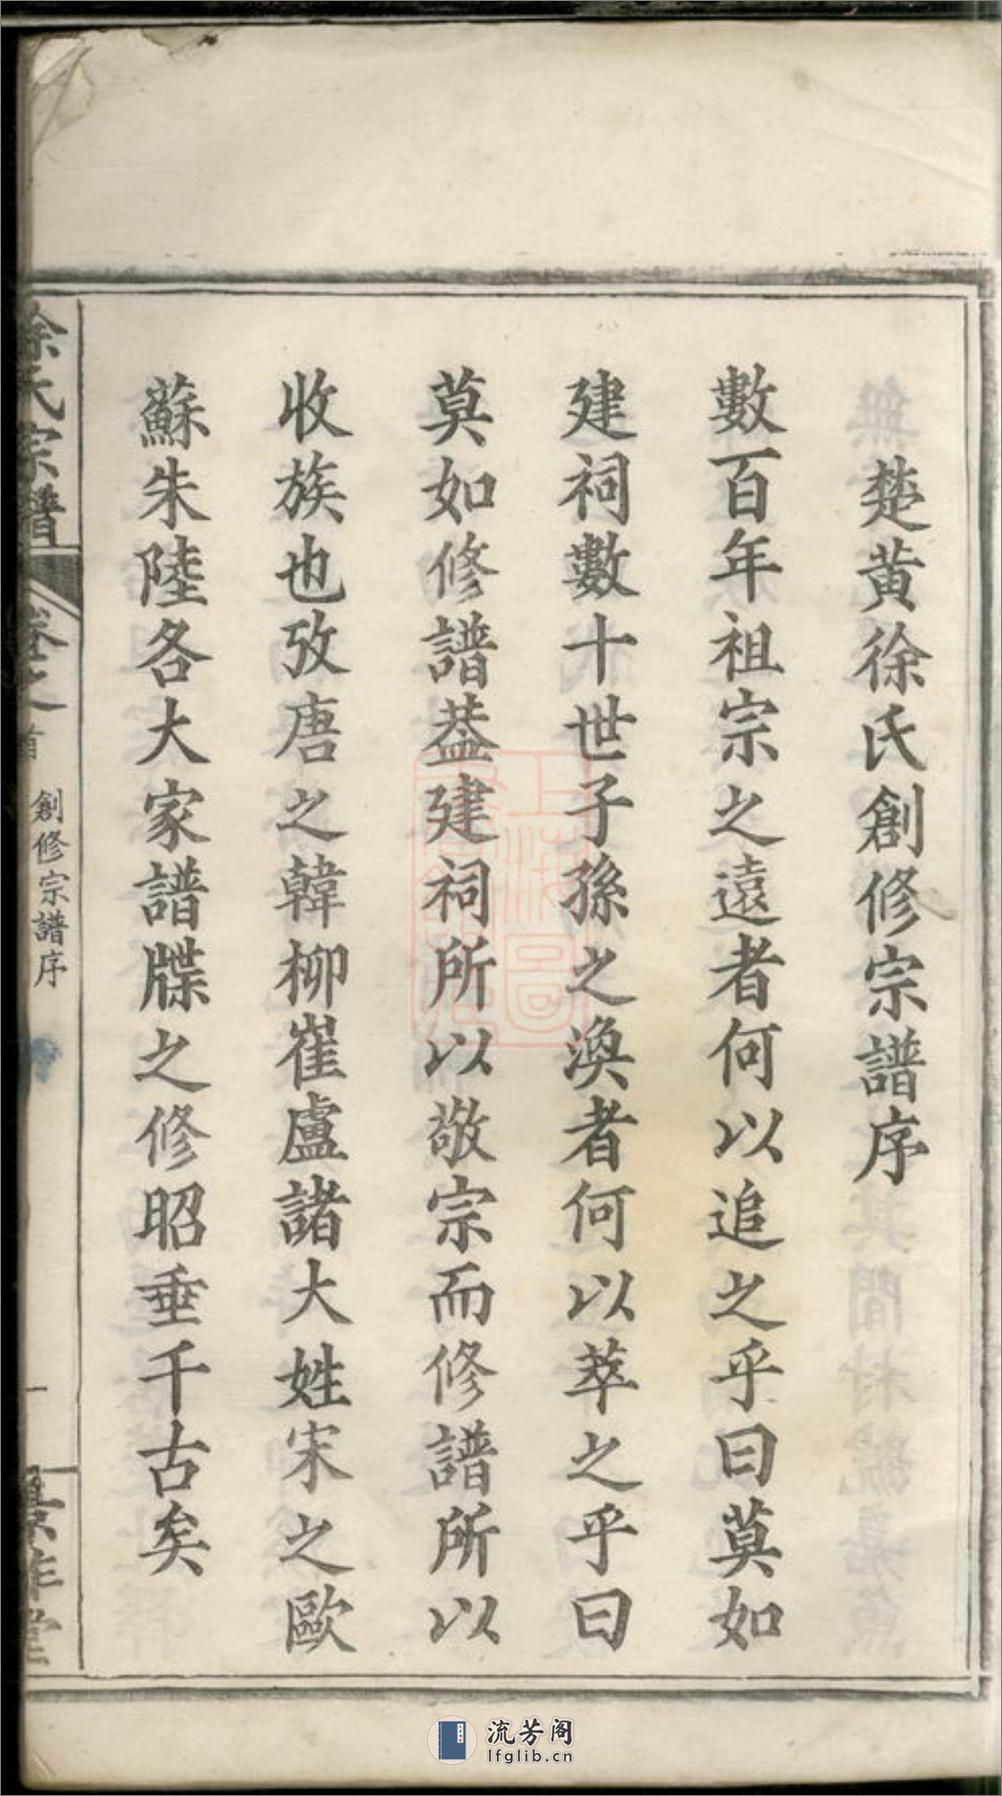 楚黄徐氏創修宗譜序
數百年祖宗之遠者何以追之乎曰莫如
建祠數十世子孫之渙者何以萃之乎曰
莫如修譜葢建祠所以敬宗而修譜所以
收族也攷唐之韓柳崔盧諸大姓宋之歐
蘇朱陸各大家譜牒之修昭垂千古矣
徐氏宗譜
卷之首
創修宗譜序
一
流芳阁
lfglib.cn